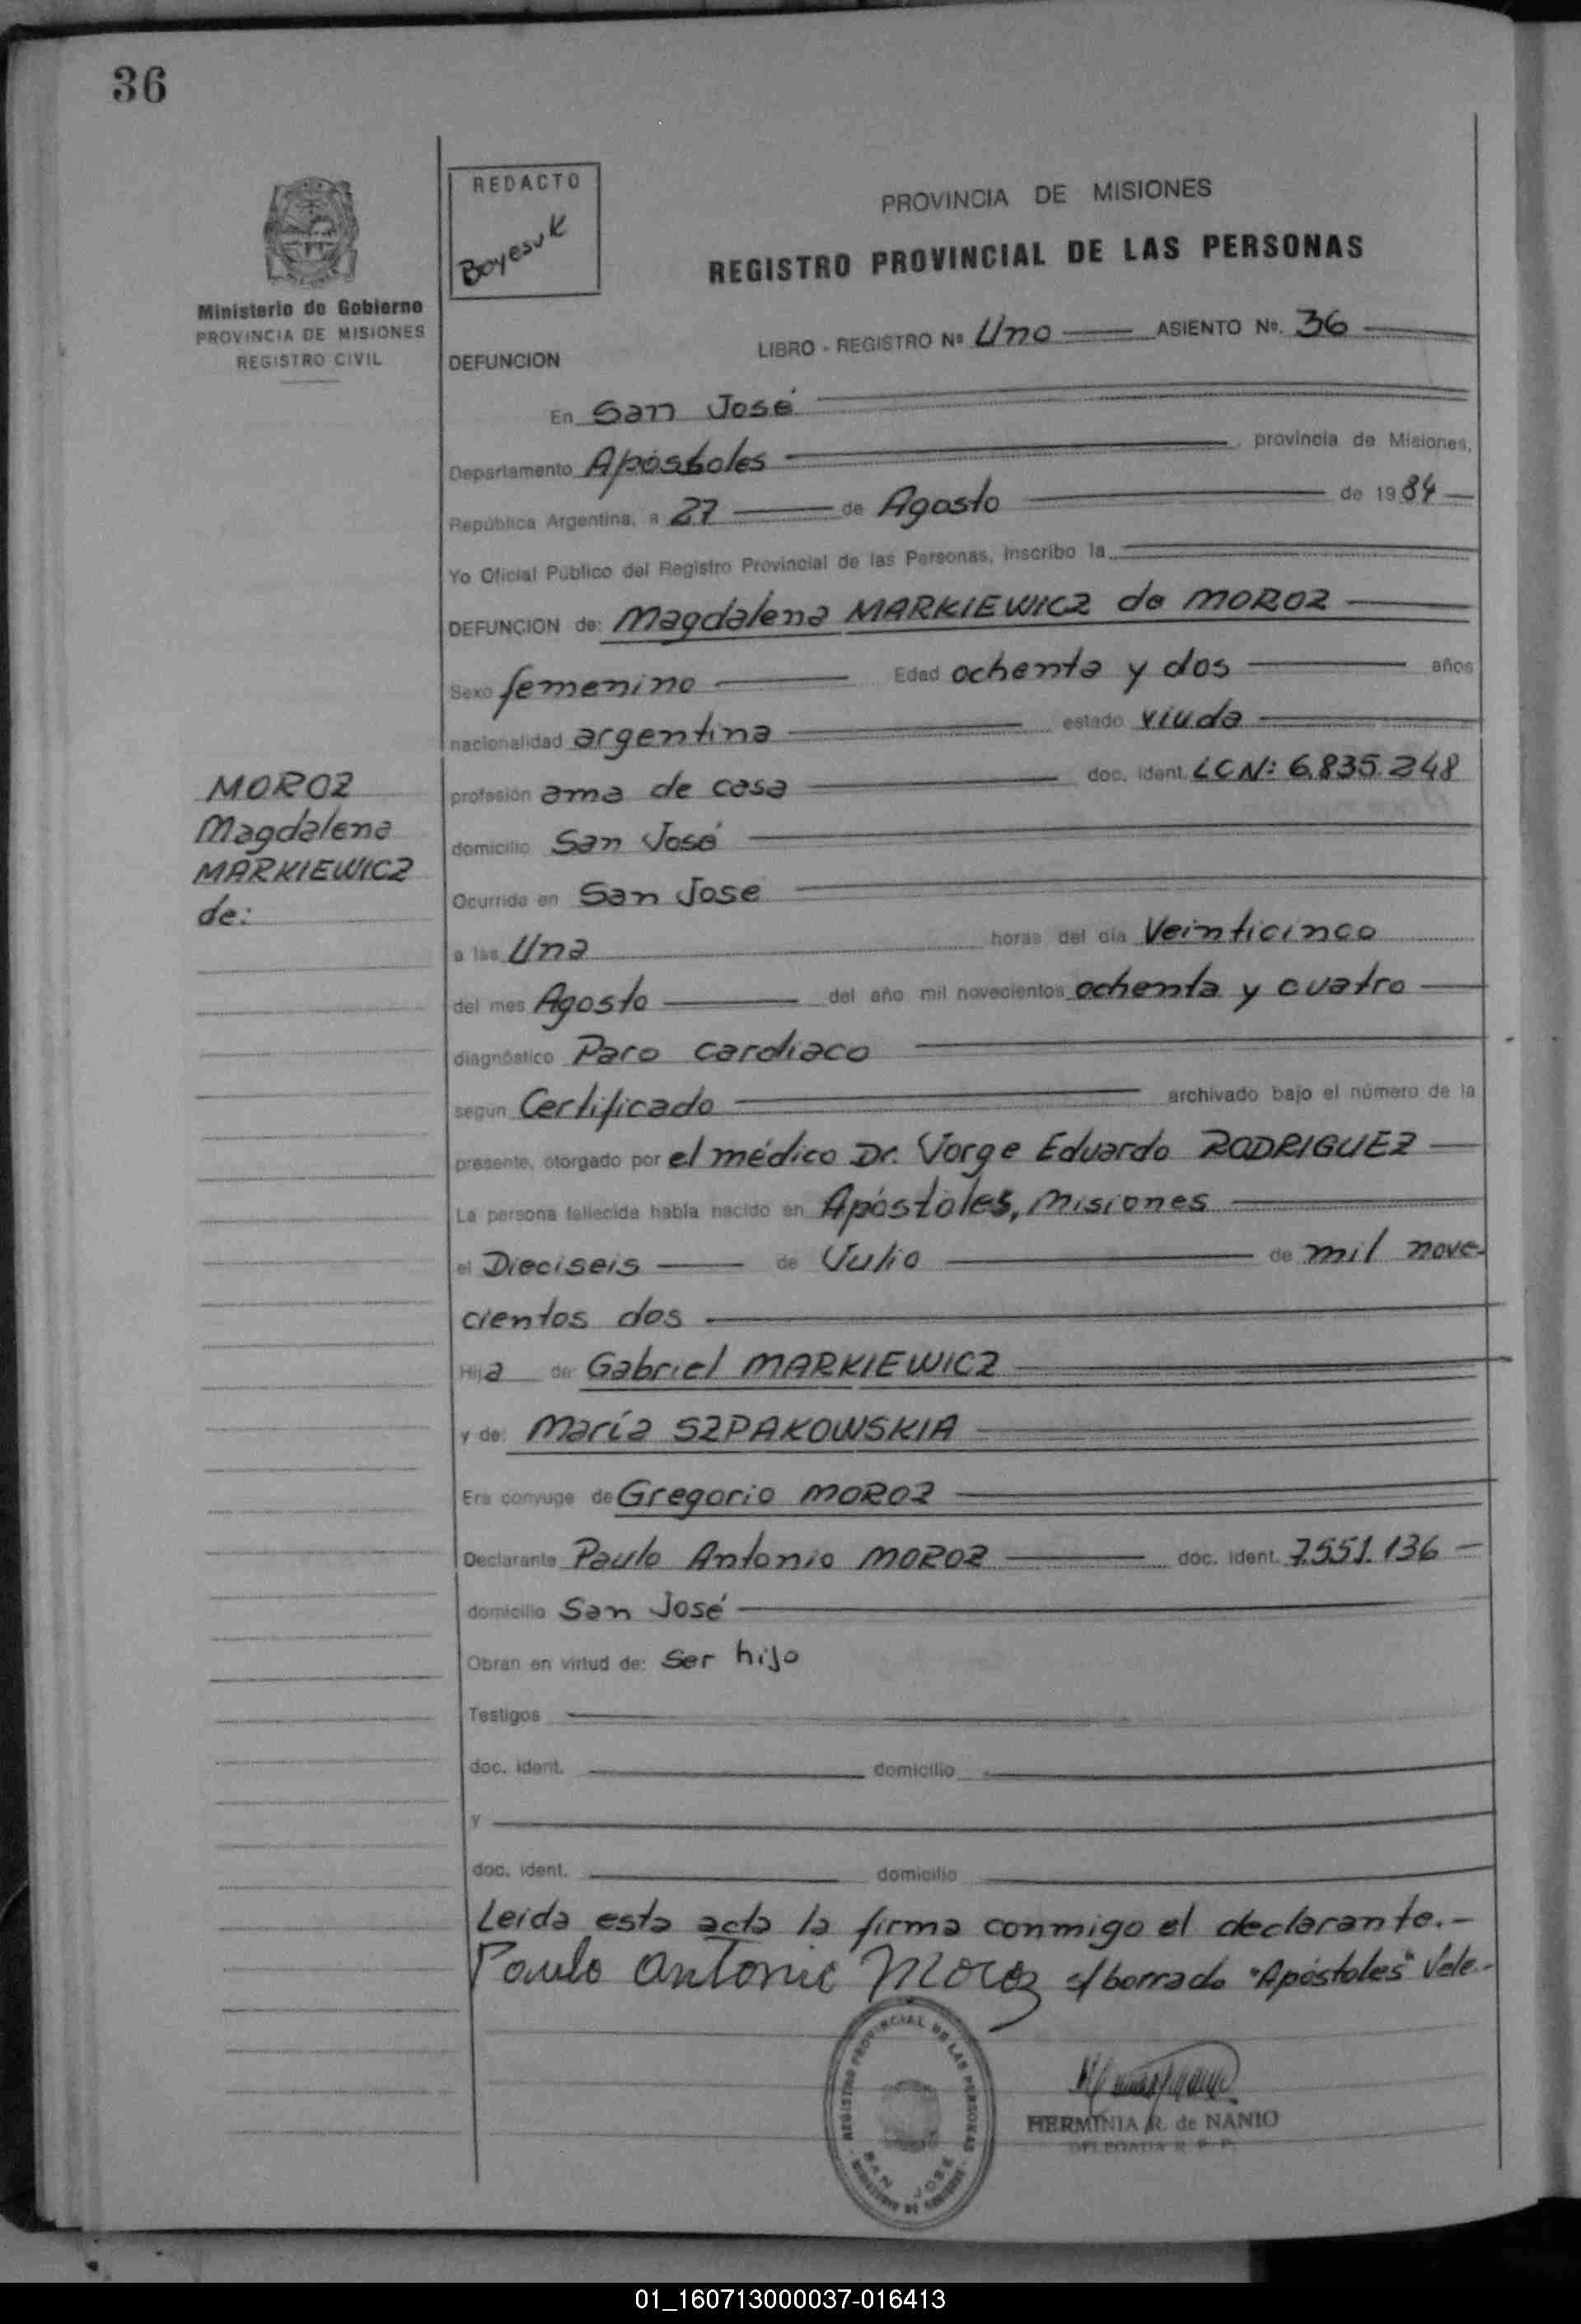 36
REDACTO
Boyesuk
PROVINCIA DE MISIONES
REGISTRO PROVINCIAL DE LAS PERSONAS
Ministerio de Gobierno
PROVINCIA DE MISIONES
REGISTRO CIVIL
LIBRO - REGISTRO Nº Uno ASIENTO Nº. 36
DEFUNCION
En San José
Departamento Apóstoles provincia de Misiones,
República Argentina, a 27 de Agosto de 1984
Yo Oficial Público del Registro Provincial de las Personas, inscribo la
DEFUNCION de: Magdalena MARKIEWICZ de MOROZ
Sexo femenino Edad ochenta y dos años
nacionalidad argentina estado viuda
profesión ama de casa doc. ident. LC Nº: 6.835.248
domicilio San José
Ocurrida en San Jose
a las Una horas del día Veinticinco
del mes Agosto del año mil novecientos ochenta y cuatro
diagnóstico Paro cardiaco
según Certificado archivado bajo el número de la
presente, otorgado por el médico Dr. Jorge Eduardo RODRIGUEZ
La persona fallecida había nacido en Apóstoles, Misiones
el Dieciseis de Julio de mil nove-
cientos dos
Hija de: Gabriel MARKIEWICZ
y de: María SZPAKOWSKIA
Era conyuge de Gregorio MOROZ
Declarante Paulo Antonio MOROZ doc. ident. 7.551.136
domicilio San José
Obran en virtud de: ser hijo
Testigos
doc. ident. domicilio
y
doc. ident. domicilio
Leida esta acta la firma conmigo el declarante.-
Paulo Antonio Moroz s/borrado "Apóstoles" Vale.-
MOROZ
Magdalena
MARKIEWICZ
de:
REGISTRO PROVINCIAL DE LAS PERSONAS
SAN JOSE
MINISTERIO DE GOBIERNO
HERMINIA R. de NANIO
DELEGADA R. P. P.
01_160713000037-016413